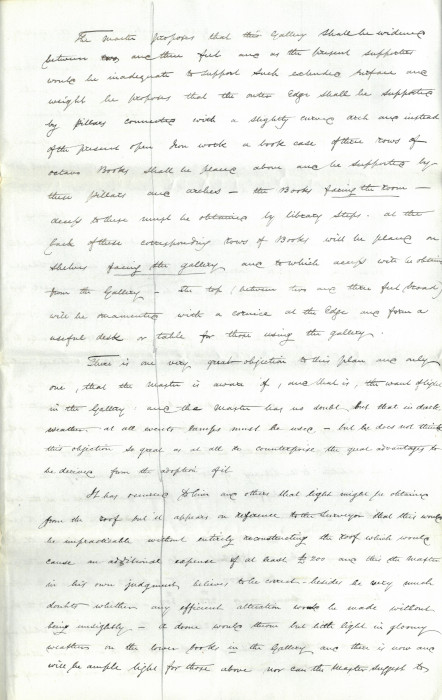 The Master proposes that this Gallery shall be widened
between two and three feet and as the present supports
would be inadequate to support such extended surface and
weight he proposes that the outer Edge shall be supported
by pillars connected with a slightly curved arch and instead
of the present open Iron work a book case of three rows of
octavo Books shall be placed above and be supported by
these pillars and arches – the Books facing the room –
access to these must be obtained by library steps. At the
back of these corresponding rows of Books will be placed on
shelves facing the gallery and to which access will be obtained
from the Gallery – the top (between two and three feet broad)
will be ornamented with a cornice at the Edge and form a
useful desk or table for those using the gallery.
There is one very great objection to this plan and only
one, that the Master is aware of, and that is, the want of light
in the Gallery and the Master has no doubt but that in dark
weather at all events lamps must be used – but he does not think
this objection so great as at all to counterpoise the great advantages to
be derived from the adoption of it.
It has occurred to him and others that light might be obtained
from the roof but it appears on reference to the Surveyor that this would
be impracticable without entirely reconstructing the roof which would
cause an additional expense of at least £200 and this the Master
in his own judgment believes to be correct – besides he very much
doubts whether any efficient alteration could be made without
being unsightly – a dome would throw but little light in gloomy
weather on the lower books in the Gallery and there is now and
will be ample light for those above nor can the Master suggest to